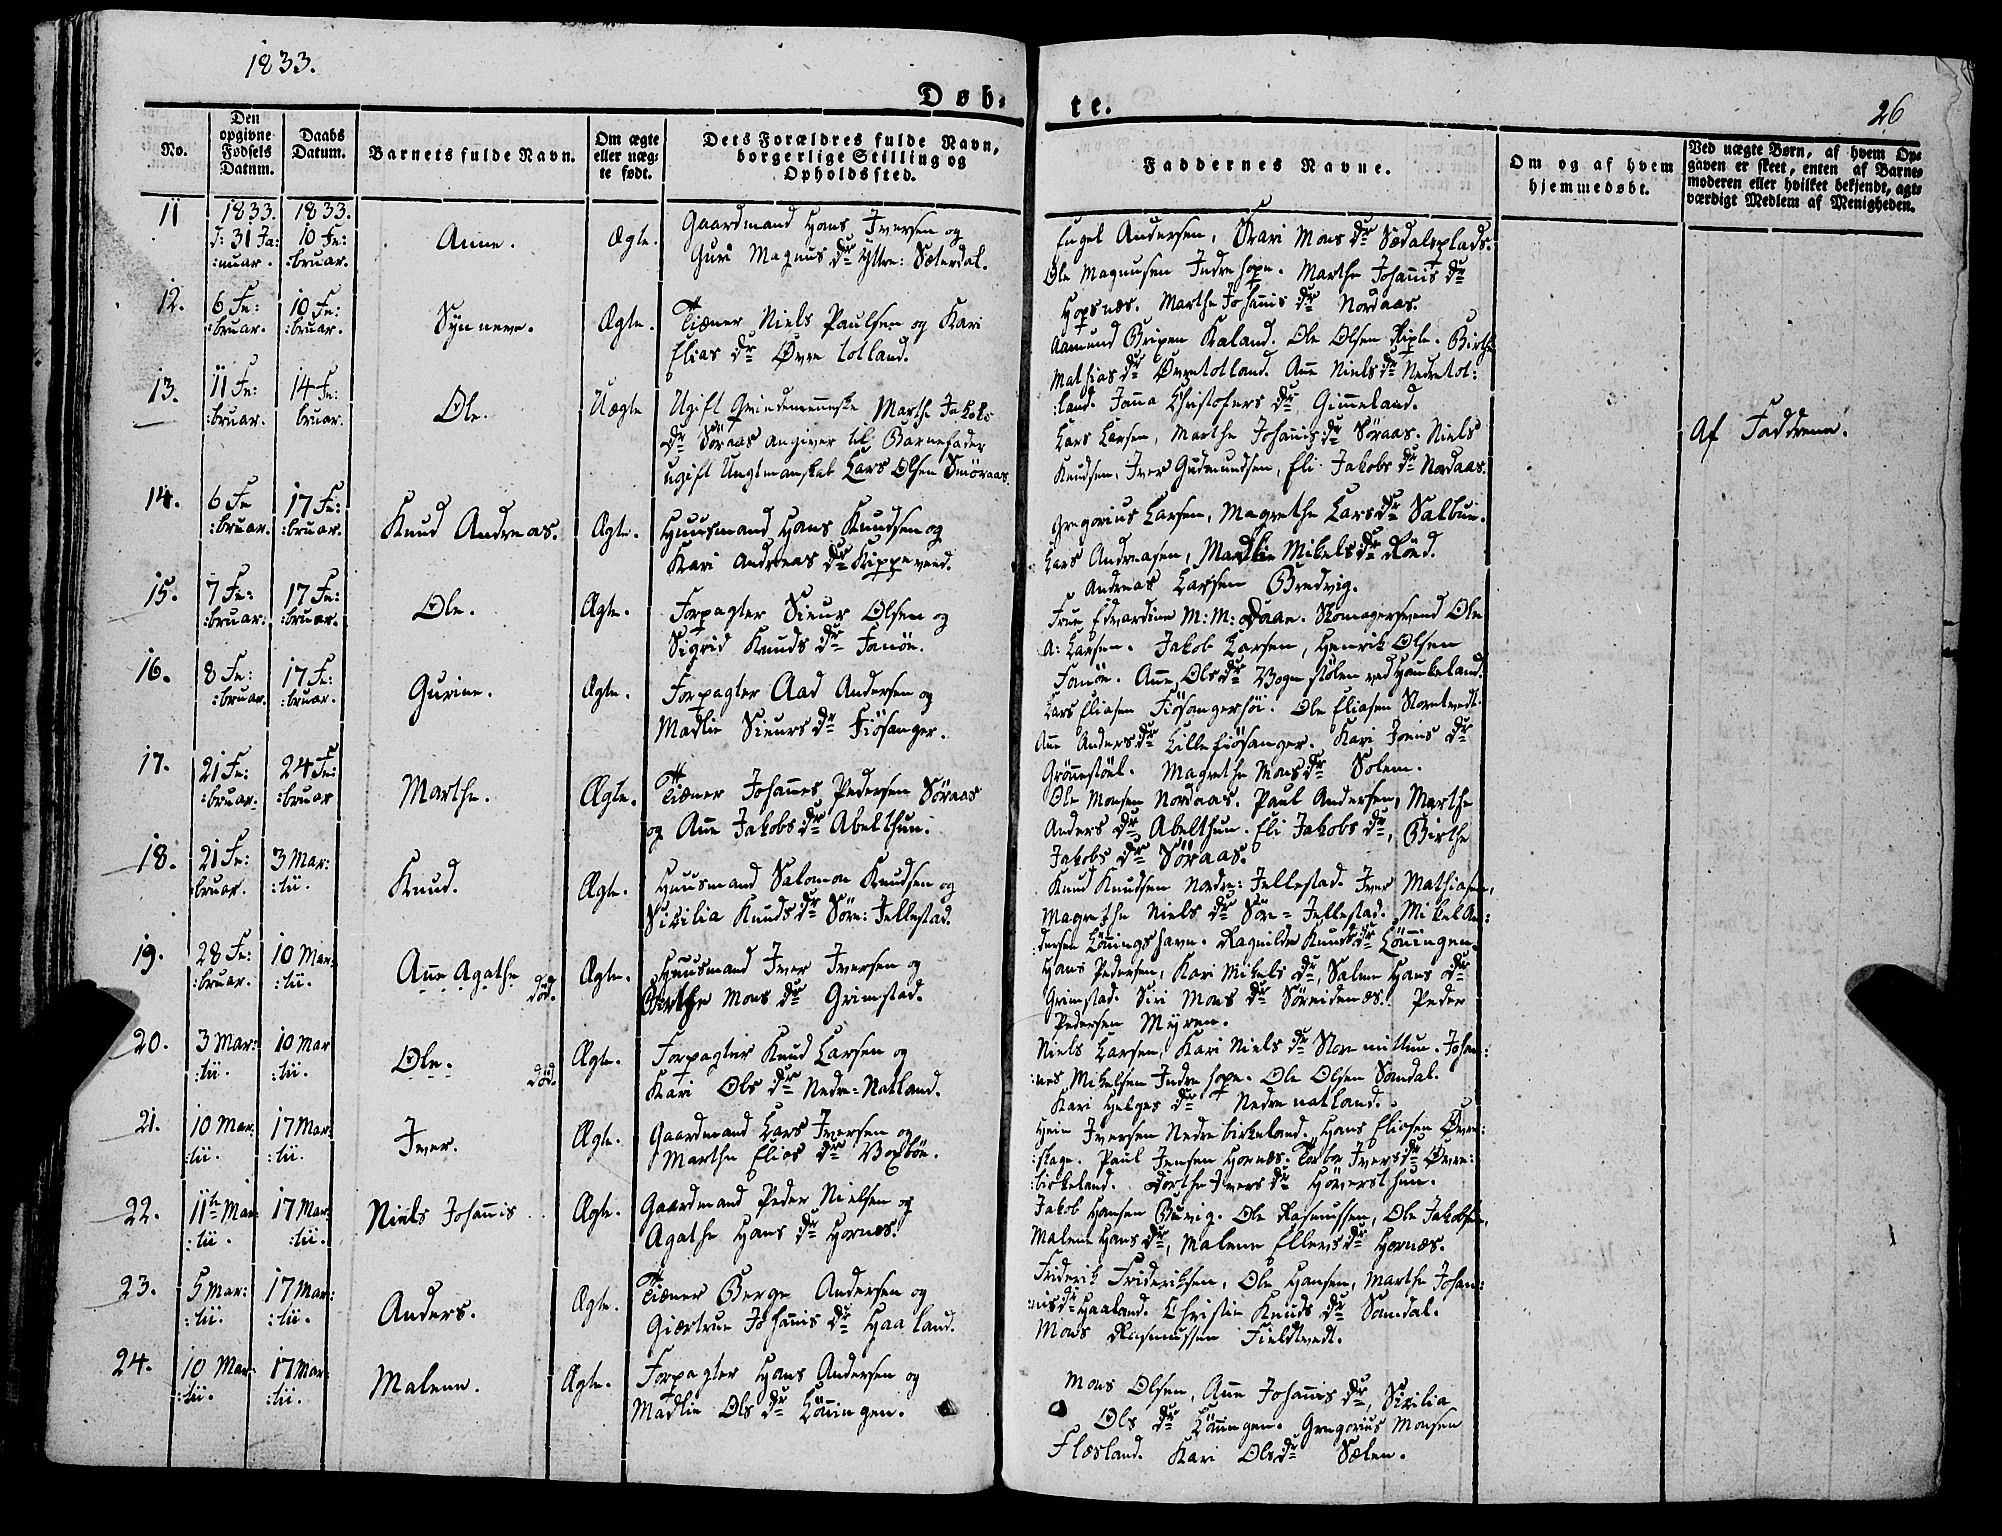 1833.
Døb-
te.
26
No.
Den opgivne Fødsels Datum.
Daabs Datum.
Barnets fulde Navn.
Om ægte eller uæg- te født.
Dets Forældres fulde Navn, borgerlige Stilling og Opholdssted.
Faddernes Navne.
Om og af hvem hjemmedøbt.
Ved uægte Børn, af hvem Op-
gaven er skeet, enten af Barne-
moderen eller hvilket bekjendt, agt-
værdigt Medlem af Menigheden.
11
1833. d: 31 Ja: :nuar.
1833. 10 Fe: :bruar.
Anne.
Ægte.
Gaardmand Hans Iversen og
Guri Magnus dr Yttre: Sæterdal.
Engel Andersen, Kari Mons dr Sædalsplads.
Ole Magnusen Indre hope. Marthe Johañis dr
Hopsnæs. Marthe Johañis dr Nordaas.
12.
6 Fe: :bruar.
10 Fe: :bruar.
Synneve.
Ægte.
Tiæner Niels Paulsen og Kari
Elias dr Øvre totland.
Aamund Kaland. Ole Olsen Riple. Birthe
Mathias dr Øvretotland. Añe Niels dr Nedretot:
:land. Janna Christofers dr Giṁeland.
13.
11 Fe: :bruar.
14 Fe: bruar.
Ole.
Uægte
Ugift Qvindemenneske Marthe Jakobs
dr Söraas angiver til Barnefader
ugift Ungtmanskab Lars Olsen Smöraas.
Lars Larsen, Marthe Johañis dr Söraas. Niels
Knudsen, Iver Gudmundsen, Eli Jakobs dr Nordaas.
Af Faddrene.
14.
6 Fe :bruar.
17 Fe: :bruar.
Knud Andreas.
Ægte.
Huusmand Hans Knudsen og
Kari Andreas dr Skippeveed.
Gregorius Larsen, Magrethe Lars dr Salbue.
Lars Andreasen, Madlie Mikels dr Röed.
Andreas Larsen Bredvig.
15.
7 Fe: :bruar:
17 Fe: :bruar.
Ole.
Ægte.
Forpagter Sieur Olsen og
Sigrid Knuds dr Fanöe.
Frue Edvardine M: M: Daae. Skomagersvend Ole
A: Larsen. Jakob Larsen, Henrik Olsen
Fanöe. Añe Ols dr Vognstølen ved Haukeland.
16.
8 Fe: :bruar.
17 Fe: :bruar.
Gurine.
Ægte.
Forpagter Aad Andersen og
Madlie Sieurs dr Fiösanger.
Lars Eliasen Fiösangersöi. Ole Eliasen Storetvedt.
Añe Anders dr Lille fiösanger. Kari Joens dr
Gröñestöel. Magrethe Mons dr Solem.
17.
21 Fe: :bruar.
24 Fe: :bruar
Marthe.
Ægte.
Tiæner Johañes Pedersen Söraas
og Añe Jakobs dr Abelthun.
Ole Monsen Nordaas. Paul Andersen, Marthe
Anders dr Abelthun. Eli Jakobs dr, Birthe
Jakobs dr Söraas.
18.
21 Fe: :bruar.
3 Mar: :tii.
Knud.
Ægte.
Huusmand Salomon Knudsen og
Sikilia Knuds dr Söre: Jellestad.
Knud Knudsen Nordre: Jellestad. Iver Mathiasen,
Magrethe Niels dr Söre = Jellestad. Mikel An:
:dersen Löñingshavn. Ragnilde Knuds dr Löñingen.
19.
28 Fe: :bruar.
10 Mar: :tii.
Añe Agathe
död.
Ægte.
Huusmand Iver Iversen og
Birthe Mons dr Grimstad.
Hans Pedersen, Kari Mikels dr, Salem Hans dr
Grimstad. Siri Mons dr Söreidenæs. Peder
Pedersen Myren.
20.
3 Mar: :tii.
10 Mar :tii.
Ole.
död.
Ægte.
Forpagter Knud Larsen og
Kari Ols dr Nedre-Natland.
Niels Larsen, Kari Niels dr Store mittun. Johan:
:nes Mikelsen Indre hope. Ole Olsen Sandal.
Kari Helges dr Nedre natland.
21.
10 Mar: :tii.
17 Mar: :tii.
Iver.
Ægte.
Gaardmand Lars Iversen og
Marthe Elias dr Vogsböe.
Hein Iversen Nedre birkeland. Hans Eliasen Øvre:
:skage. Paul Jensen Hornæs. Torbor Ivers dr Øvre:
:birkeland. Dorthe Ivers dr Höversthun.
22.
11te Mar :tii.
17 Mar: :tii.
Niels Johañis
Ægte.
Gaardmand Peder Nielsen og
Agathe Hans dr Hornæs.
Jakob Hansen Ole Rasmussen, Ole Jakobsen,
Malene Hans dr, Malene Ellers dr Hornæs.
23.
5 Mar: :tii.
17 Mar: :tii.
Anders.
Ægte.
Tiæner Berge Andersen og
Giærtrue Johañis dr Haaland.
Friderik Frideriksen, Ole Hansen, Marthe Johan:
:nis dr Haaland. Christie Knuds dr Sandal.
Mons Rasmussen Fieldtvedt.
24.
10 Mar: :tii.
17 Mar: :tii.
Malene.
Ægte.
Forpagter Hans Andersen og
Madlie Ols dr Löñingen.
Mons Olsen, Añe Johañis dr, Sicilia
Ols dr Löñingen. Gregorius Monsen
Flæsland. Kari Ols dr Sælen.